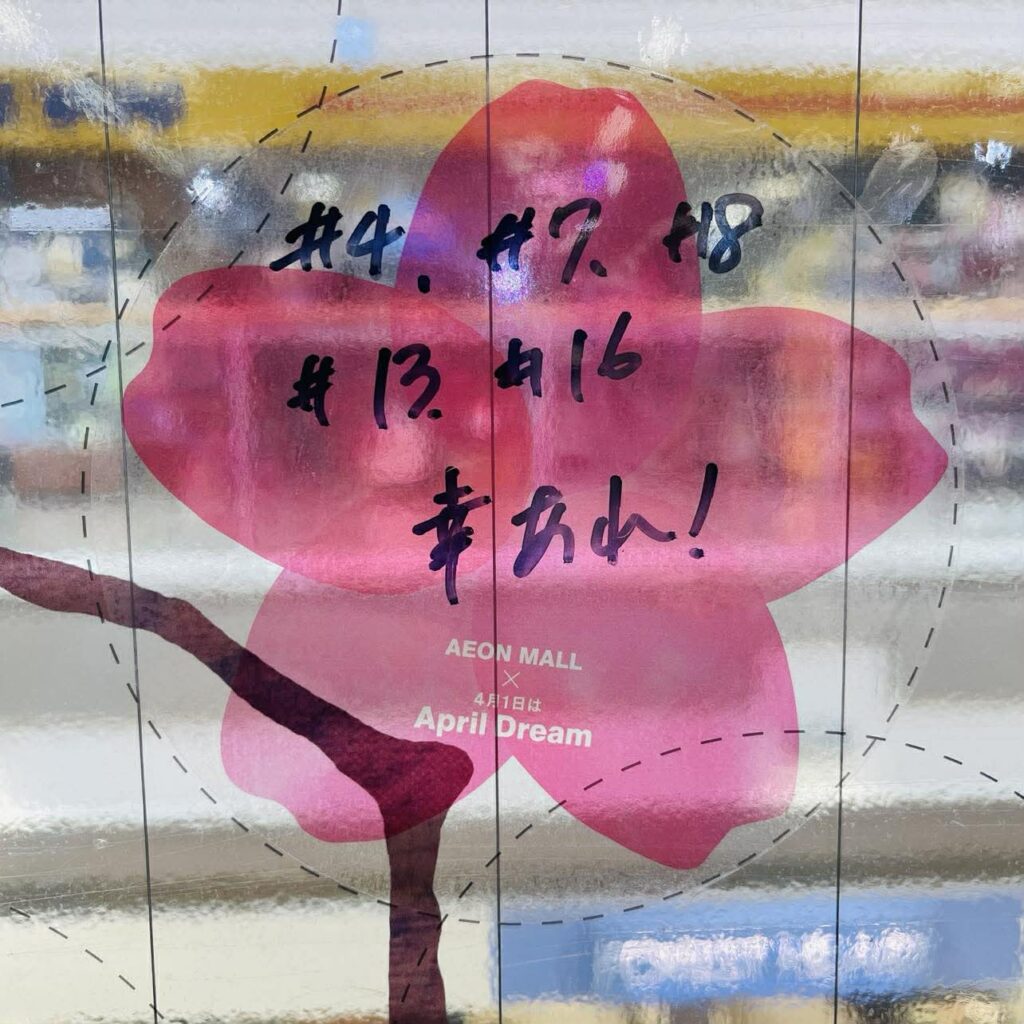 #4. #7. #8
#13. #16
幸あれ!
AEON MALL
×
4月1日は
April Dream